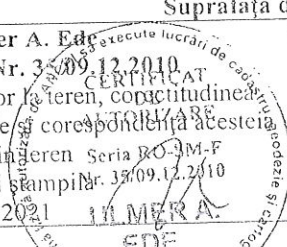 Suprafața d
er A. Ede
Nr. 35/09.12.2010
or la teren, corectitudinea
e corespondența acesteia
in teren
stampilă
2021
execute lucrări de cadastru, geodezie și cartog
autorizată de AN
CERTIFICAT
DE
AUTORIZARE
Seria RO-SM-F
Nr. 35/09.12.2010
ULMER A.
EDE